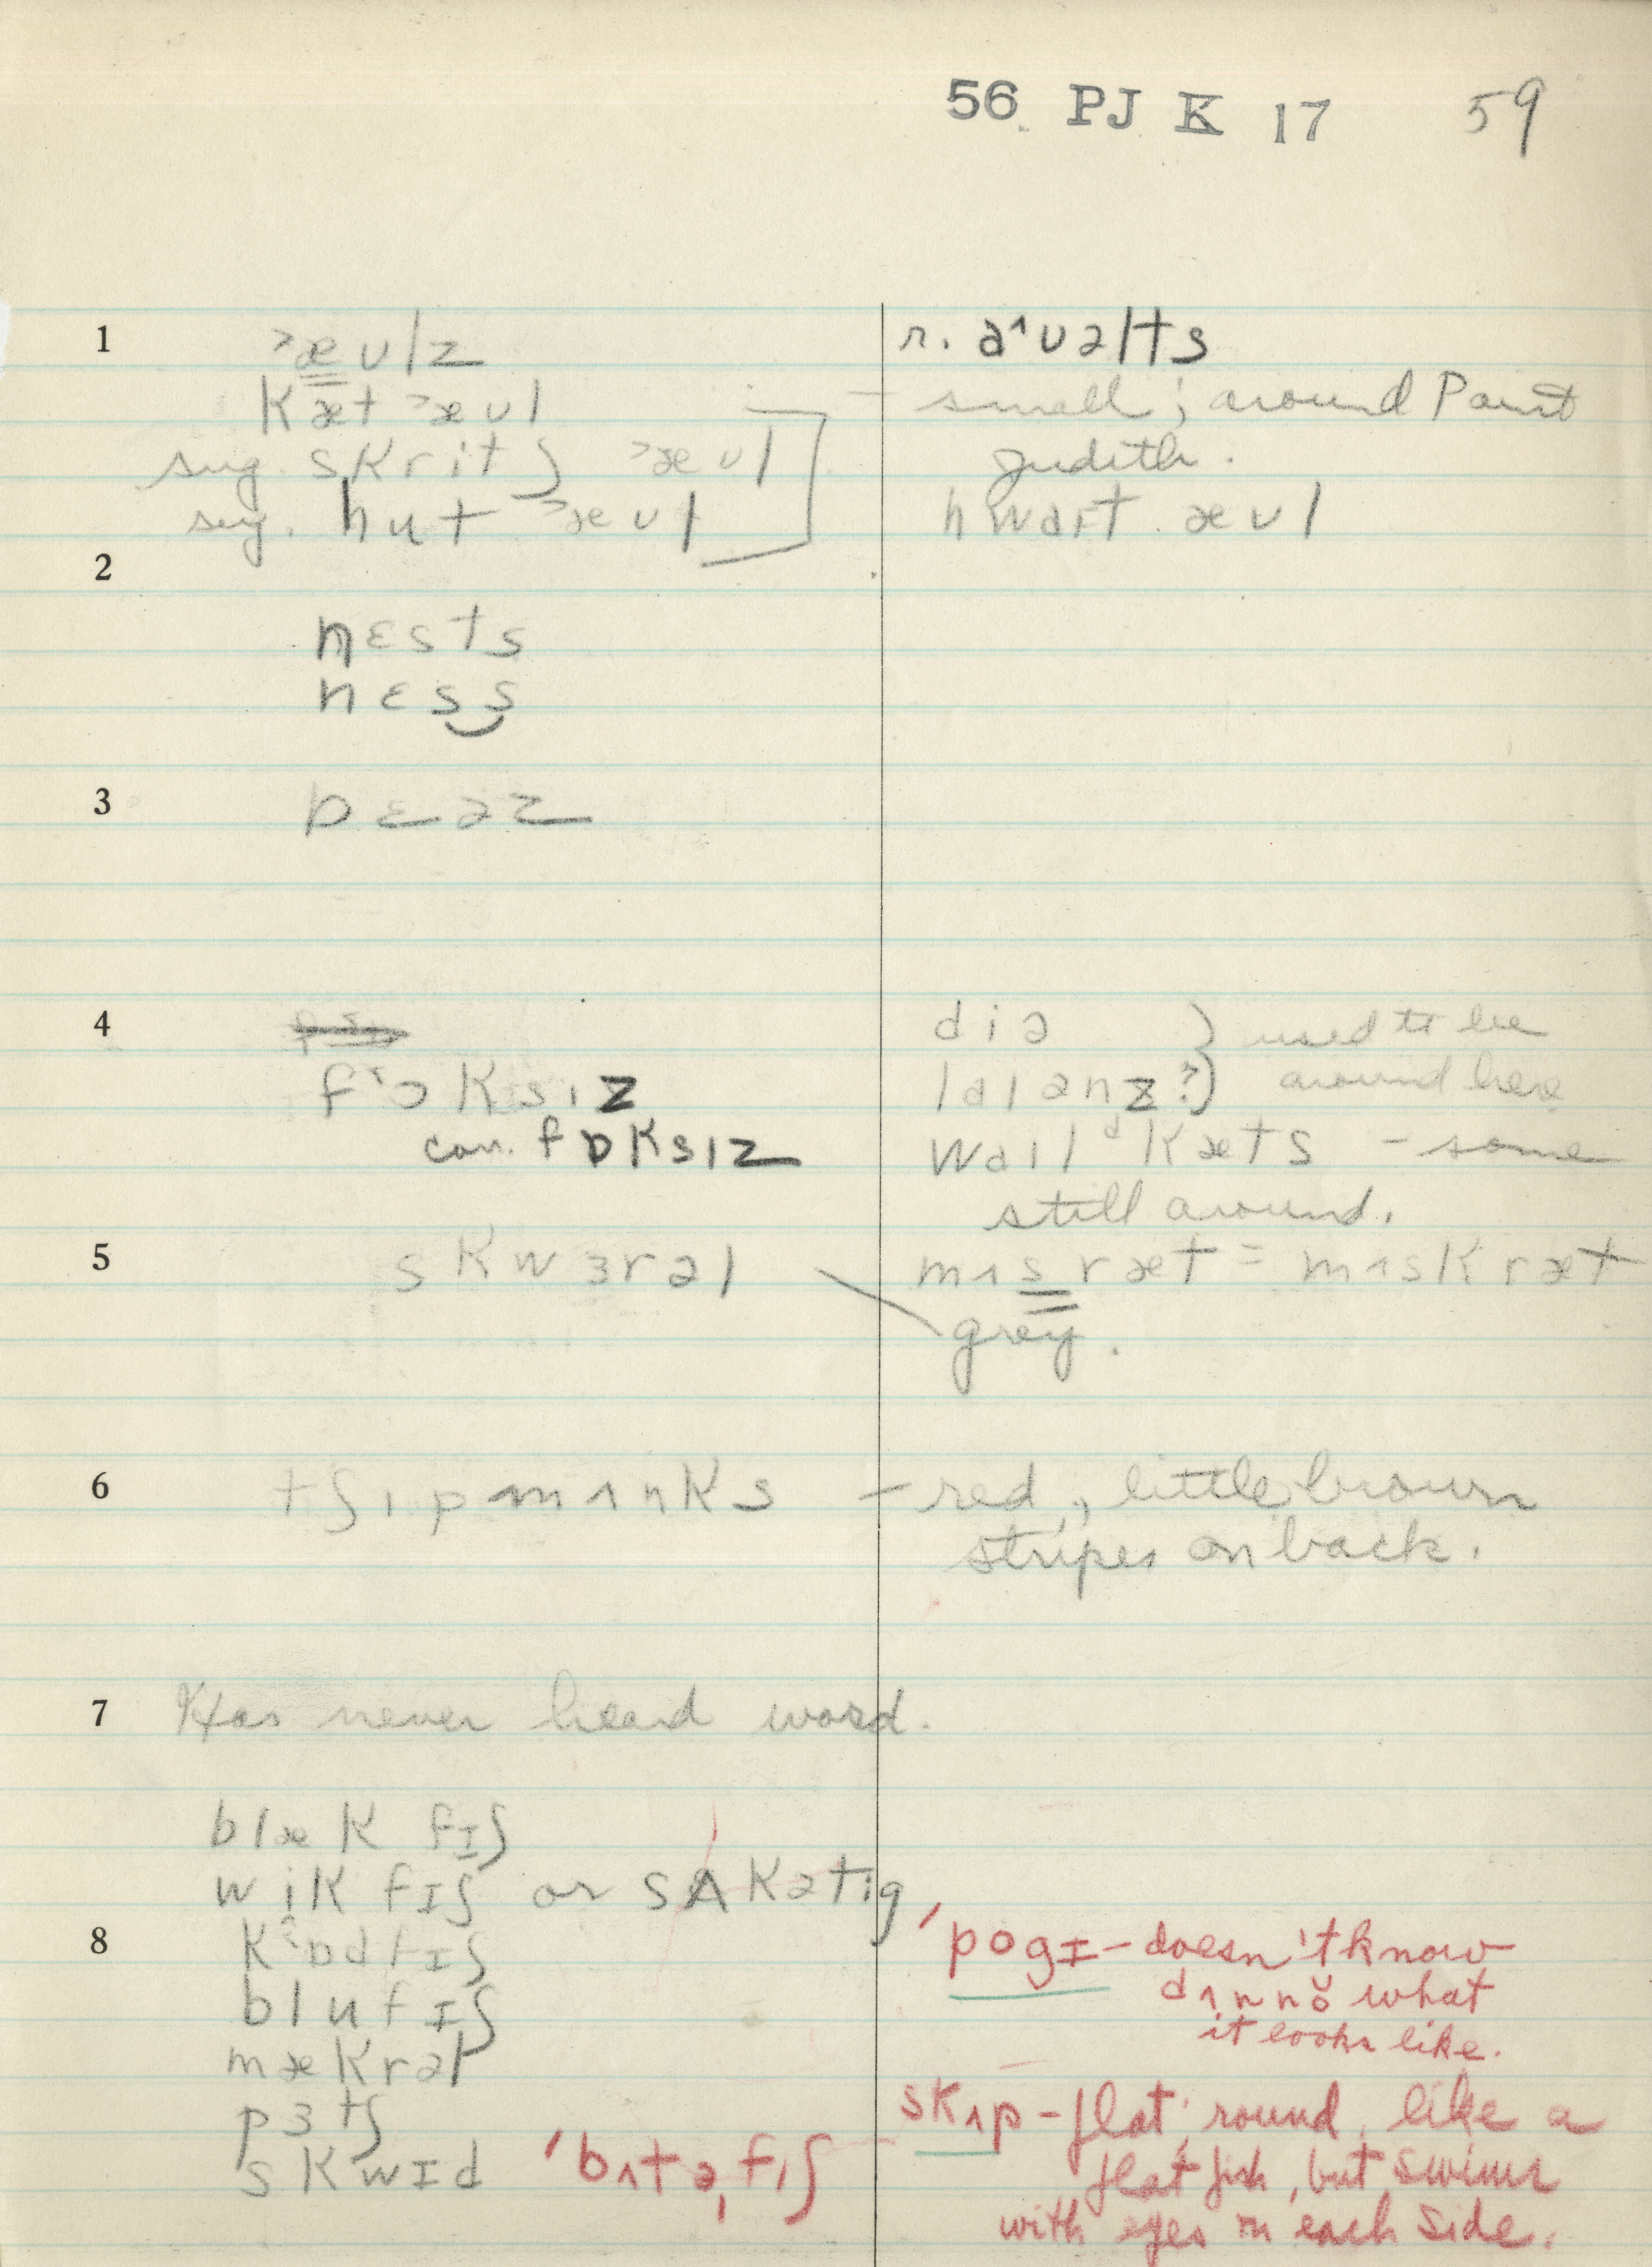 56 PJ K 17 59
1 ˃æʊlz r. aˆʊəlts
kæt ˃æʊl – small; around Point
sug. skritʃ ˃æʊl Judith.
sug. hut ˃æʊl hwaɪt. æʊl
2
nɛsts
nɛss
3 bɛəz
4 diə } used to be
f˃ɔksɪz laɪənz?) around here
corr. fɒksɪz waɪlᵈ kæts – some
still around.
5 skwɜrəl mʌsræt = mʌskræt
grey.
6 tʃɪpmʌnks – red, little brown
stripes on back.
7 Has never heard word.
blæk fɪʃ
wik fɪʃ or sʌkətig
8 kˆɒdfɪʃ 'pogɪ – doesn't know
blufɪʃ dʌnnŏ what
mækrəl it looks like.
pɜtʃ skʌp – flat, round, like a
skwɪd 'bʌtəˌfɪʃ flat fish, but swims
with eyes on each side.